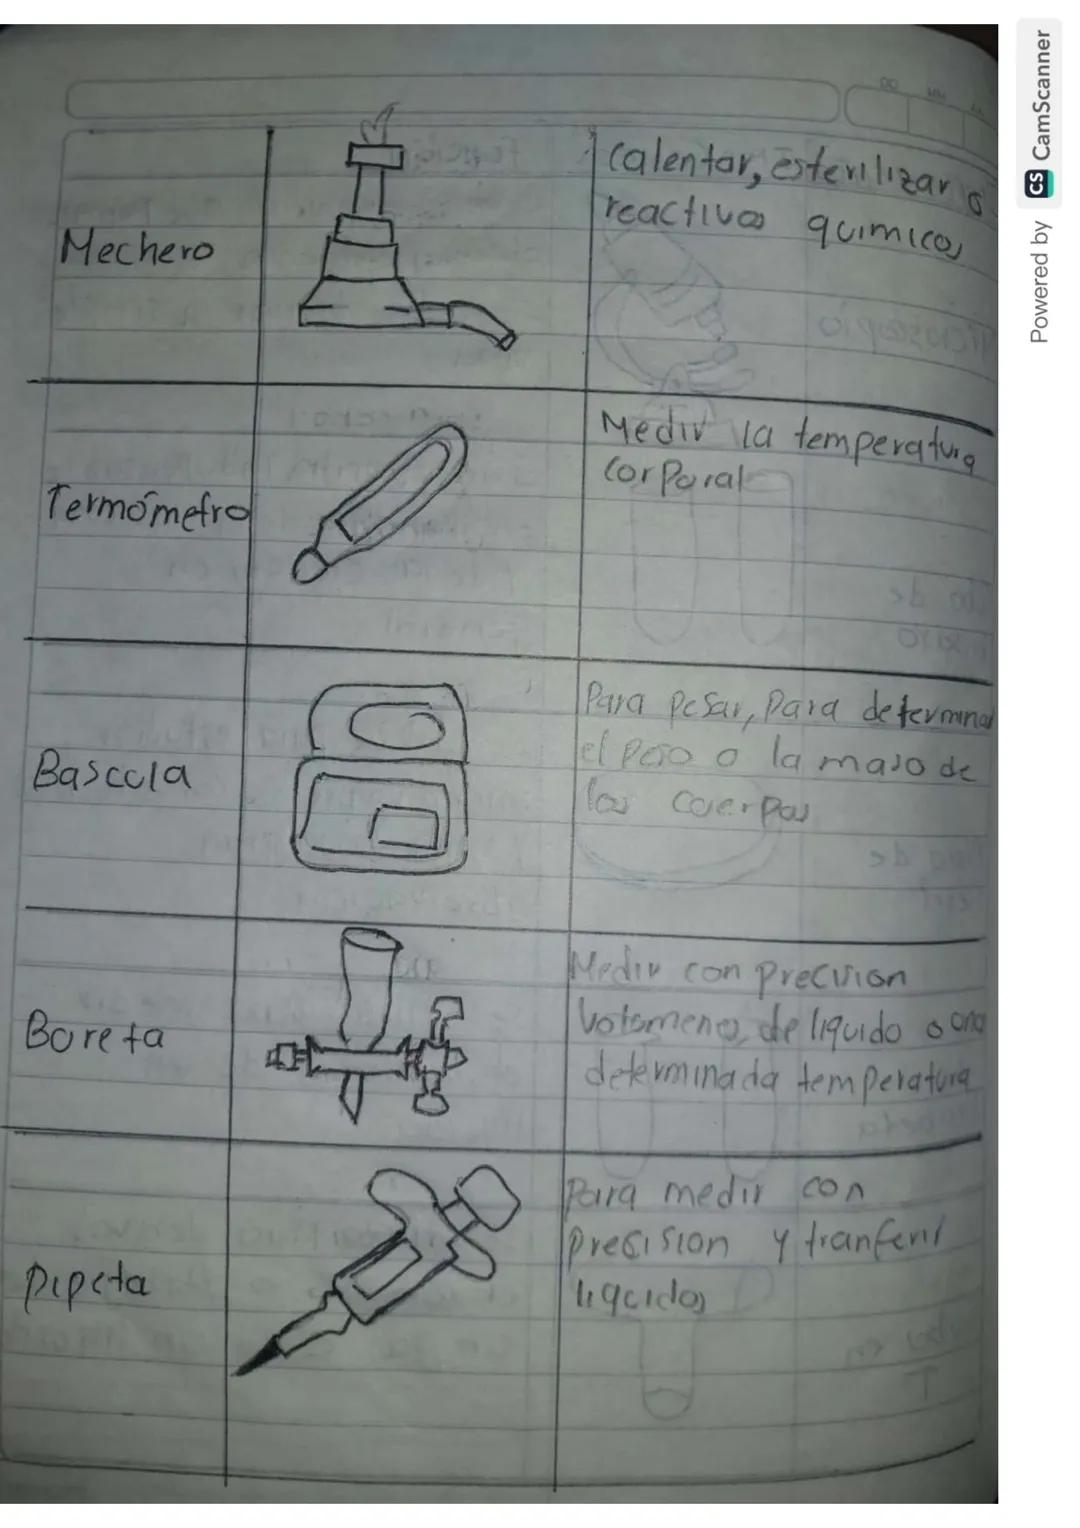 Mechero
calentar, esterilizar o
reactivos quimicos
Termómetro
Medir la temperatura
corporal
Bascula
Para pesar, para determinar
el peso o la masa de
los cuerpos
Bureta
Medir con precision
Volumenes, de liquido o una
determinada temperatura
Pipeta
Para medir con
precision y tranferir
liquidos
Powered by CS CamScanner